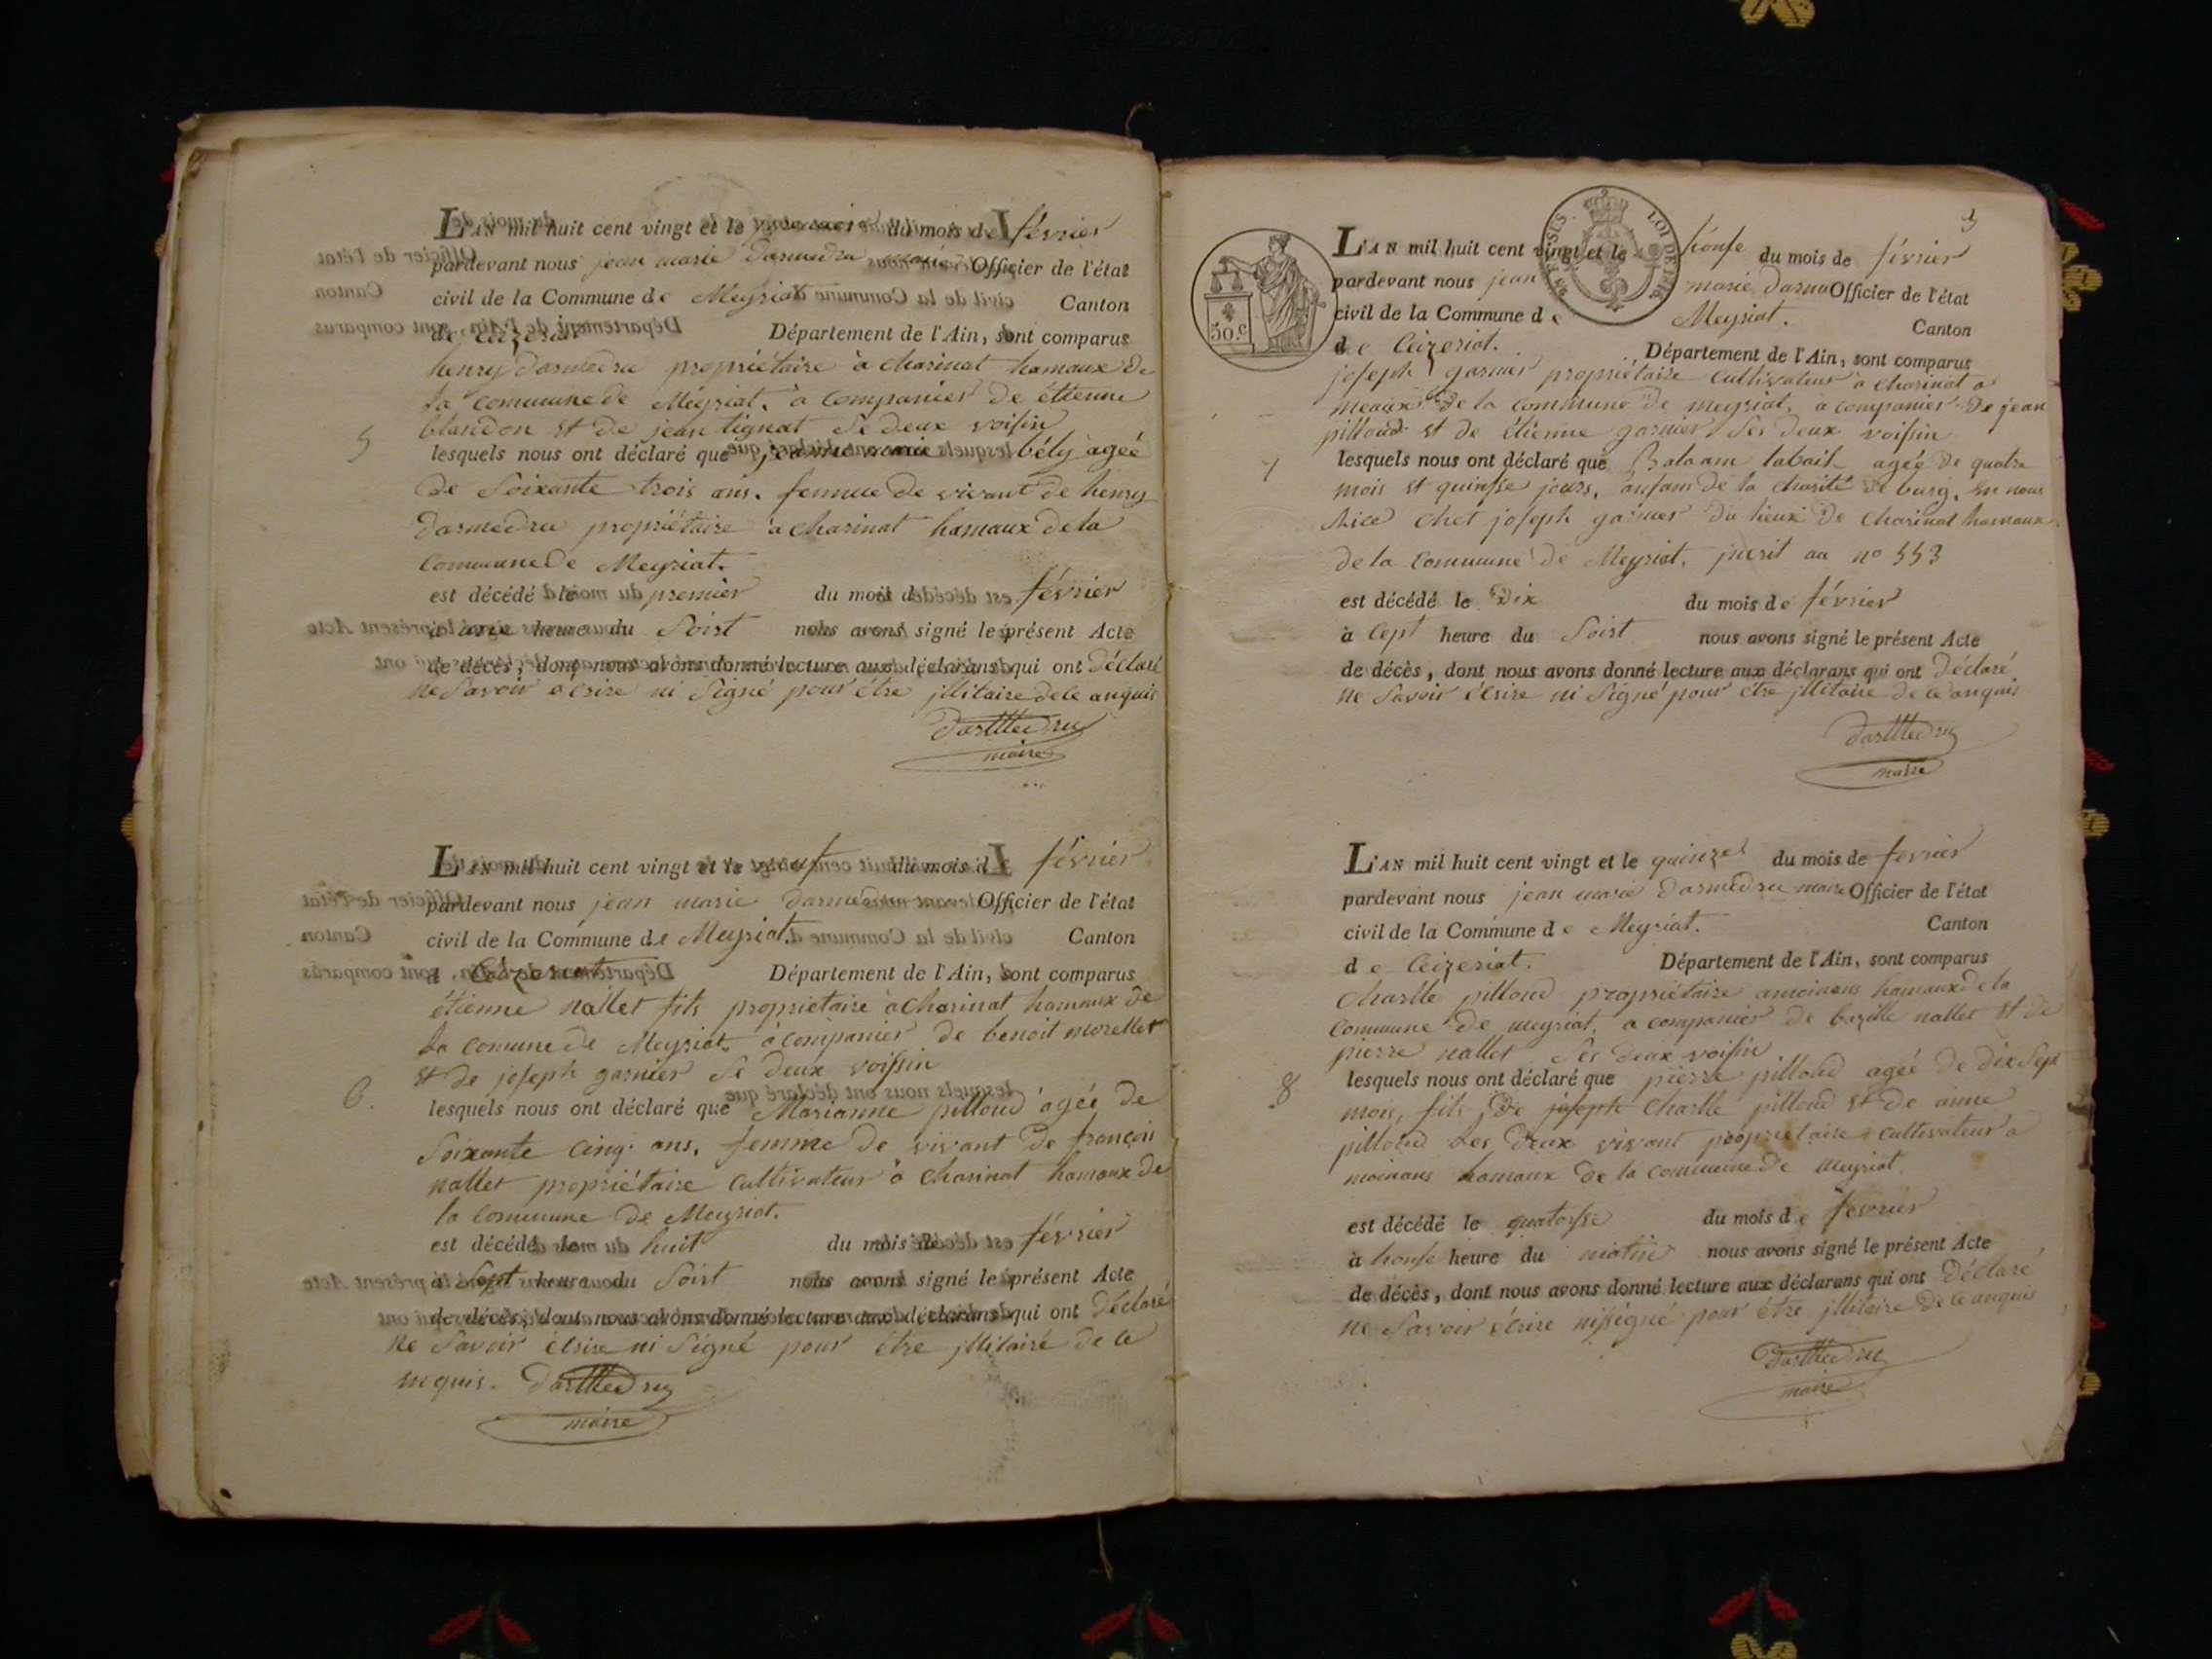 L'AN mil huit cent vingt et le premier du mois de février
pardevant nous jean marie Darmedru maire Officier de l'état
civil de la Commune de Meyriat Canton
de Ceizeriat Département de l'Ain, sont comparus
henry Darmedru propriétaire à charinat hamaux de
la commune de Meyriat. à companier de étienne
blandon et de jean tignat Se deux voisin
5
lesquels nous ont déclaré que jeanne marie bély agée
de Soixante trois ans. femme de vivant de henry
Darmedru propriétaire à charinat hamaux dela
commune de Meyriat.
est décédé le premier du mois de février
à une heure du Soirt nous avons signé le présent Acte
de décès, dont nous avons donné lecture aux déclarans qui ont Déclaré
ne Savoir écrire ni Signé pour être jllitaire de ce anquis
Darmedru
maire
L'AN mil huit cent vingt et le neuf du mois de février
pardevant nous jean marie Darmedru Officier de l'état
civil de la Commune de Meyriat. Canton
de Cézeriat Département de l'Ain, sont comparus
étienne nallet fils propriétaire à charinat hamaux de
la comune de Meyriat. à companier de benoit morellet
et de joseph garnier Se deux voisin
6.
lesquels nous ont déclaré que Marianne pilloud agée de
Soixante cinq ans, femme de vivant de françois
nallet propriétaire cultivateur à charinat hamaux de
la commune de Meyriat.
est décédé le huit du mois de février
à Sept heure du Soirt nous avons signé le présent Acte
de décès, dont nous avons donné lecture aux déclarans qui ont Déclaré
ne Savoir écrire ni Signé pour être jllitairé de ce
enquis. Darmedru
maire
3
L'AN mil huit cent vingt et le honse du mois de février
pardevant nous jean marie Darme Officier de l'état
civil de la Commune de Meyriat. Canton
de Ceizeriat. Département de l'Ain, sont comparus
50.c
LOI DE 1816
joseph garnier propriétaire cultivateur à charinat a
meaux de la commune de meyriat, à companier de jean
pilloud et de étienne garnier Ses deux voisin
7
lesquels nous ont déclaré que Balaam labait agée de quatre
mois et quinsse jours, anfam de la charité de burg, en nous
rice chet joseph garnier du lieux de charinat hamaux
de la commune de Meyriat, jncrit au no 553
est décédé le Dix du mois de février
à Cept heure du Soirt nous avons signé le présent Acte
de décès, dont nous avons donné lecture aux déclarans qui ont Déclaré
ne Savoir écrire ni Signé pour être jllitaire de ce anquis
Darmedru
maire
L'AN mil huit cent vingt et le quinze du mois de fevrier
pardevant nous jean marie Darmedru maire Officier de l'état
civil de la Commune de Meyriat. Canton
de Ceizeriat. Département de l'Ain, sont comparus
Charlle pilloud propriétaire amoinans hamaux de la
commune de meyriat, a companier de bazille nallet et de
pierre nallet Ses deux voisin
8
lesquels nous ont déclaré que pierre pilloud agée de Dix Sept
mois, fils de joseph Charlle pilloud et de anne
pilloud Les deux vivant propriétaire cultivateur a
moinans hamaux de la commune de meyriat.
est décédé le quatorsse du mois de fevrier
à honse heure du matin nous avons signé le présent Acte
de décès, dont nous avons donné lecture aux déclarans qui ont Déclaré
ne Savoir écrire nissigné pour être jllitaire de ce anquis
Darmedru
maire